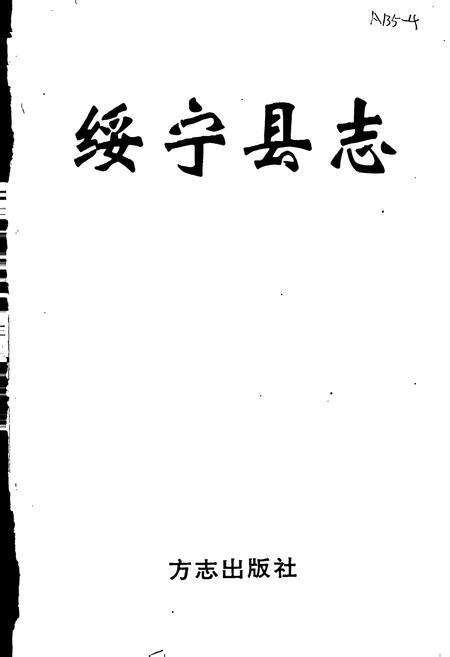 AB5-4
绥宁县志
方志出版社